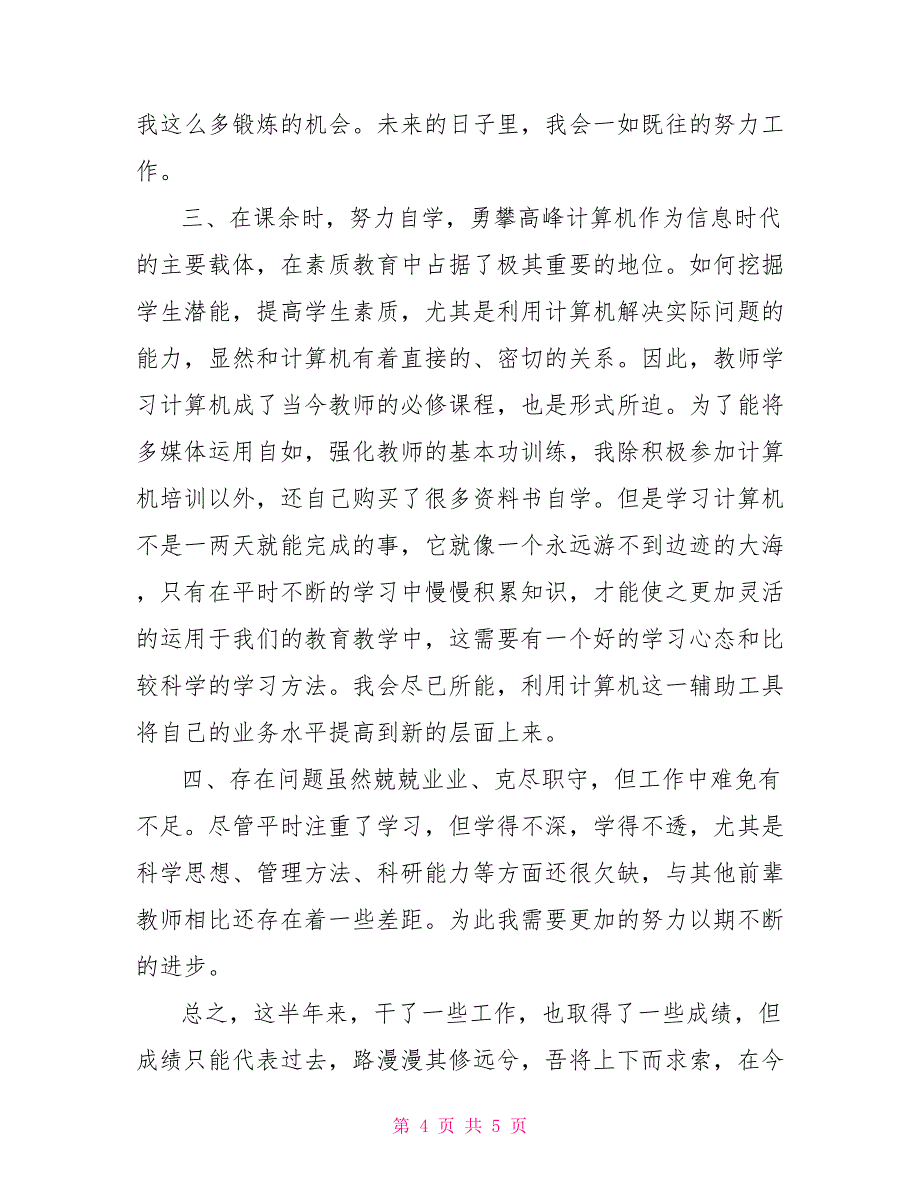 我这么多锻炼的机会。未来的日子里，我会一如既往的努力工
作。
三、在课余时，努力自学，勇攀高峰计算机作为信息时代
的主要载体，在素质教育中占据了极其重要的地位。如何挖掘
学生潜能，提高学生素质，尤其是利用计算机解决实际问题的
能力，显然和计算机有着直接的、密切的关系。因此，教师学
习计算机成了当今教师的必修课程，也是形式所迫。为了能将
多媒体运用自如，强化教师的基本功训练，我除积极参加计算
机培训以外，还自己购买了很多资料书自学。但是学习计算机
不是一两天就能完成的事，它就像一个永远游不到边迹的大海
，只有在平时不断的学习中慢慢积累知识，才能使之更加灵活
的运用于我们的教育教学中，这需要有一个好的学习心态和比
较科学的学习方法。我会尽已所能，利用计算机这一辅助工具
将自己的业务水平提高到新的层面上来。
四、存在问题虽然兢兢业业、克尽职守，但工作中难免有
不足。尽管平时注重了学习，但学得不深，学得不透，尤其是
科学思想、管理方法、科研能力等方面还很欠缺，与其他前辈
教师相比还存在着一些差距。为此我需要更加的努力以期不断
的进步。
总之，这半年来，干了一些工作，也取得了一些成绩，但
成绩只能代表过去，路漫漫其修远兮，吾将上下而求索，在今
第 4 页 共 5 页